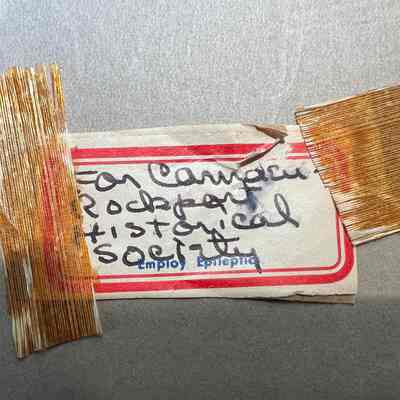 For Camden
Rockport
Historical
Society
Employ Epileptic